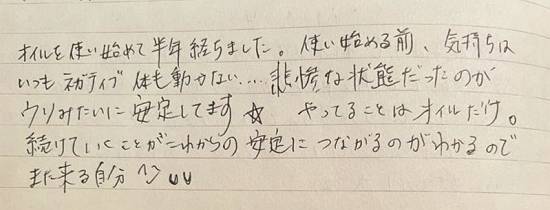 オイルを使い始めて半年経ちました。使い始める前、気持ちは
いつもネガティブ 体も動かない....悲惨な状態だったのが
ウソみたいに安定してます☆ やってることはオイルだけ。
続けていくことがこれからの安定につながるのがわかるので
また来る自分